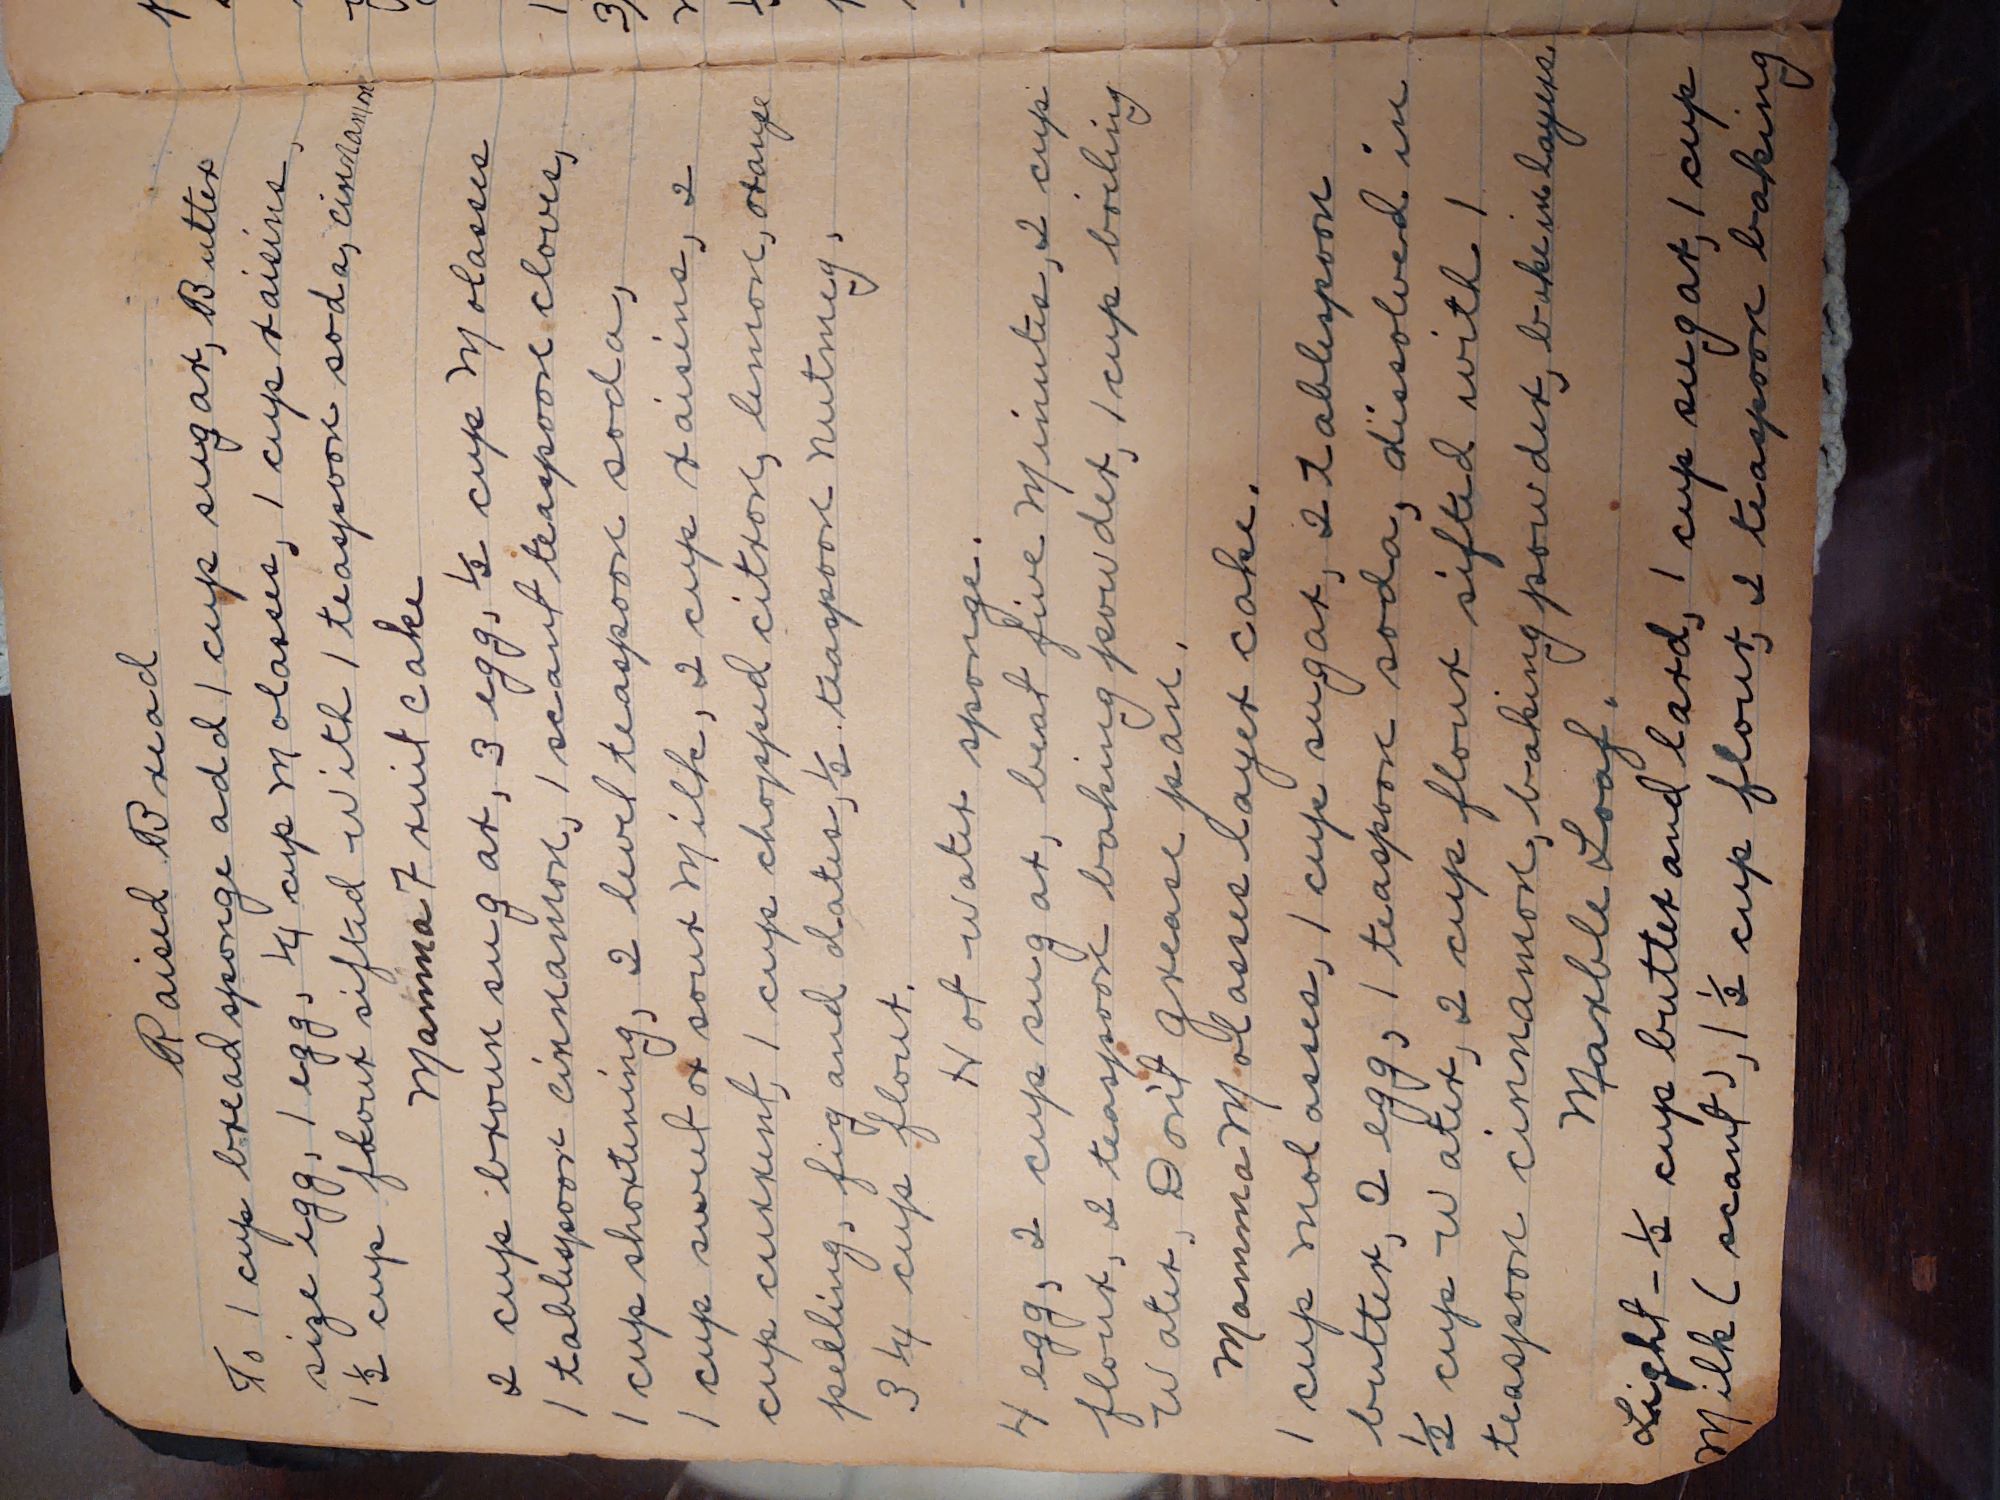 Raised Bread
To 1 cup bread sponge add 1 cup sugar, Butter
size egg, 1 egg, 1/4 cup Molasses, 1 cup raisins,
1 1/2 cup flour sifted with 1 teaspoon soda, cinnamon
Mamma Fruit cake
2 cup broun sugar, 3 egg, 1/2 cup Molasses
1 tablespoon cinnamon, 1 scant teaspoon cloves,
1 cup shortening, 2 level teaspoon soda,
1 cup sweet or sour Milk, 2 cup raisins, 2
cup current, 1 cup chopped citron, lemon, orange
pelling, fig and dates, 1/2 teaspoon nutmeg,
3 1/4 cup flour.
Hot water sponge.
4 egg, 2 cup sugar, beat five Minutes, 2 cup
flour, 2 teaspoon baking powder, 1 cup boiling
water, Don't grease pan.
Mamma Molasses layer cake.
1 cup Molasses, 1 cup sugar, 2 tablespoon
butter, 2 egg, 1 teaspoon soda, dissolved in
1/2 cup water, 2 cup flour sifted with 1
teaspoon cinnamon, baking powder, bake in layers
Marble Loaf.
Light - 1/2 cup butter and lard, 1 cup sugar, 1 cup
Milk (scant), 1 1/2 cup flour, 2 teaspoon baking